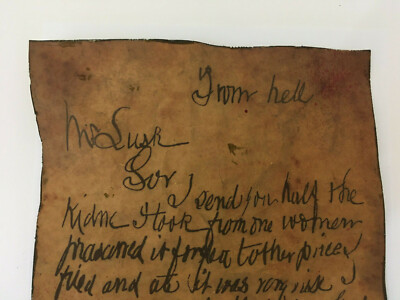 From hell
Mr Lusk
Sor
I send you half the
Kidne I took from one women
prasarved it for you tother piece I
fried and ate it was very nise I